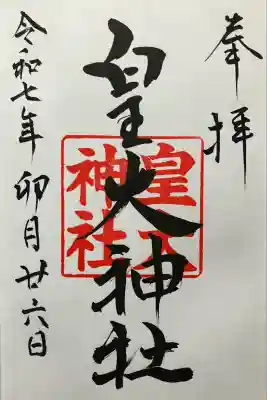 奉拝
皇大神社
皇大神社
令和七年 卯月廿六日